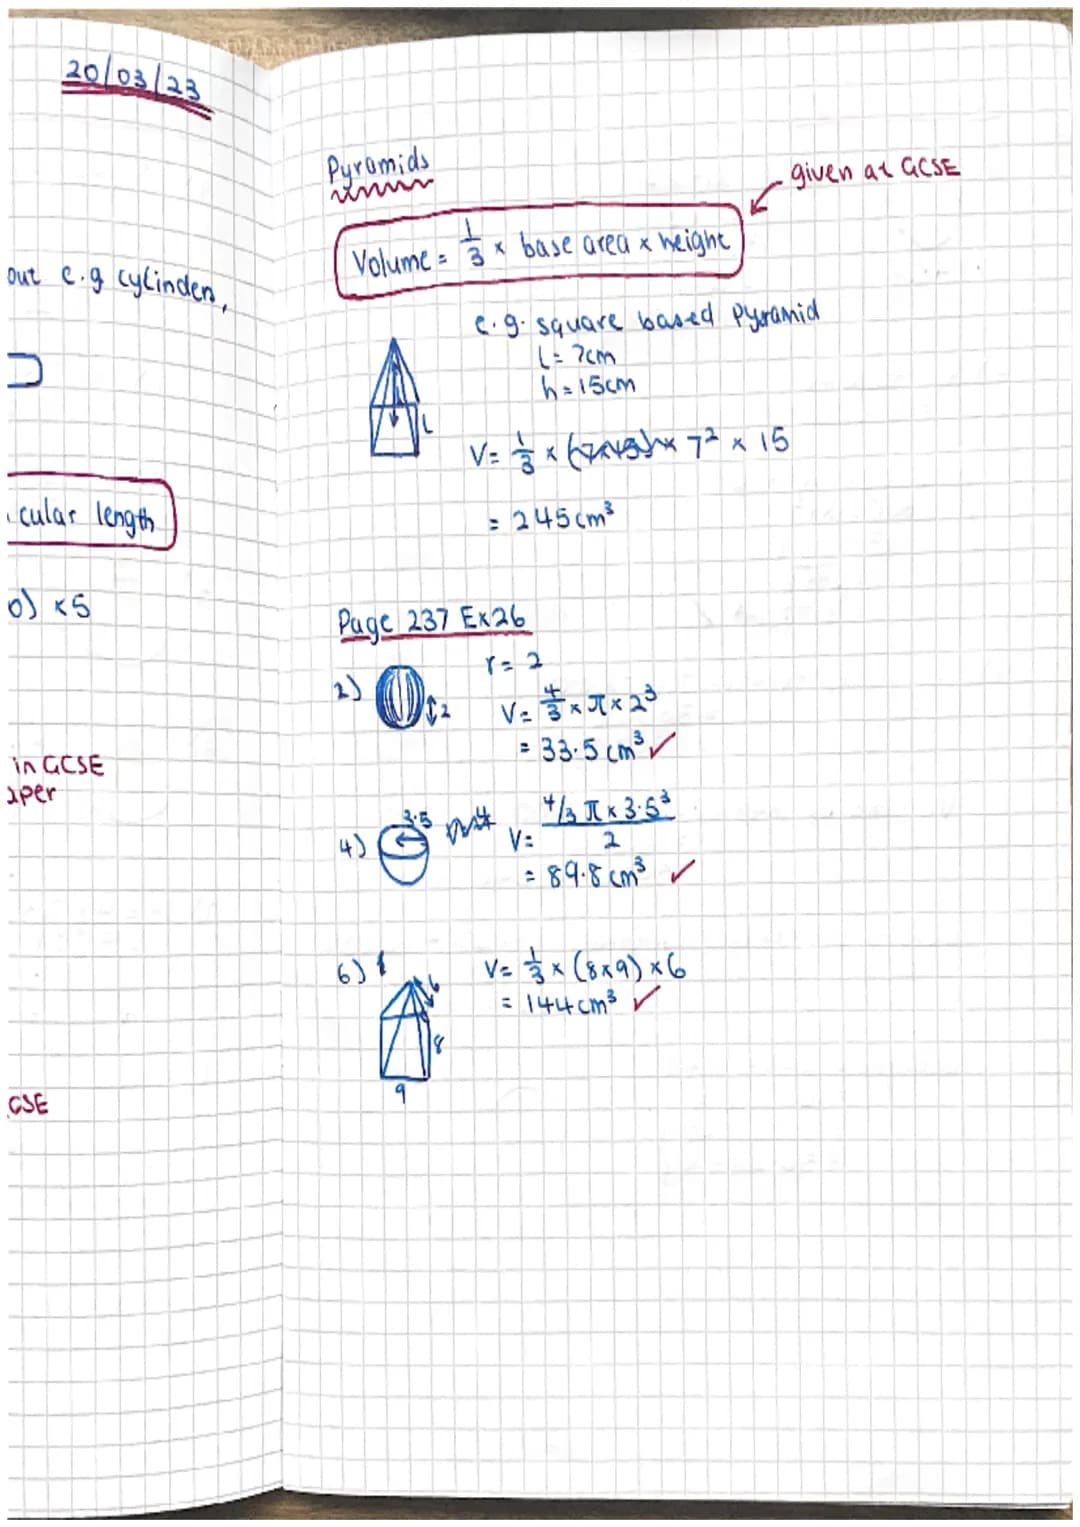 20/03/23
out e.g cylinders,
cular length
0) x5
in GCSE
aper
GCSE
Pyramids
given at GCSE
Volume = 1/3 x base area x height
e.g. square based pyramid
l = 7cm
h = 15cm
l
V = 1/3 x 7² x 15
= 245cm³
Page 237 Ex26
2) 2 r = 2
V = 4/3 x π x 2³
= 33.5 cm³ ✓
4) 3.5 V = 4/3 π x 3.5³
2
= 89.8 cm³ ✓
6) 6 V = 1/3 x (8x9) x 6
= 144cm³ ✓
8
9